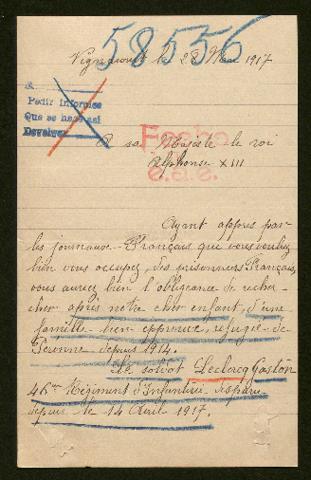 58556
Vignacourt le 28 Mai 1917
S.
Pedir informes
Que se hace asi
Devolver
Fecho
e.a.e.
A sa Majesté le roi
Alphonse XIII
Ayant appres par
les journeaux Français que vous voulez
bien vous occupez, des prisonniers Français,
vous auriez bien l'obligeance de recher-
cher après notre cher enfant, d'une
famille bien epprouve, refugie de
Peronne depuis 1914.
Le soldat Leclercq Gaston
46me Régiment d'Infanterie disparu
depuis le 14 Avril 1917.